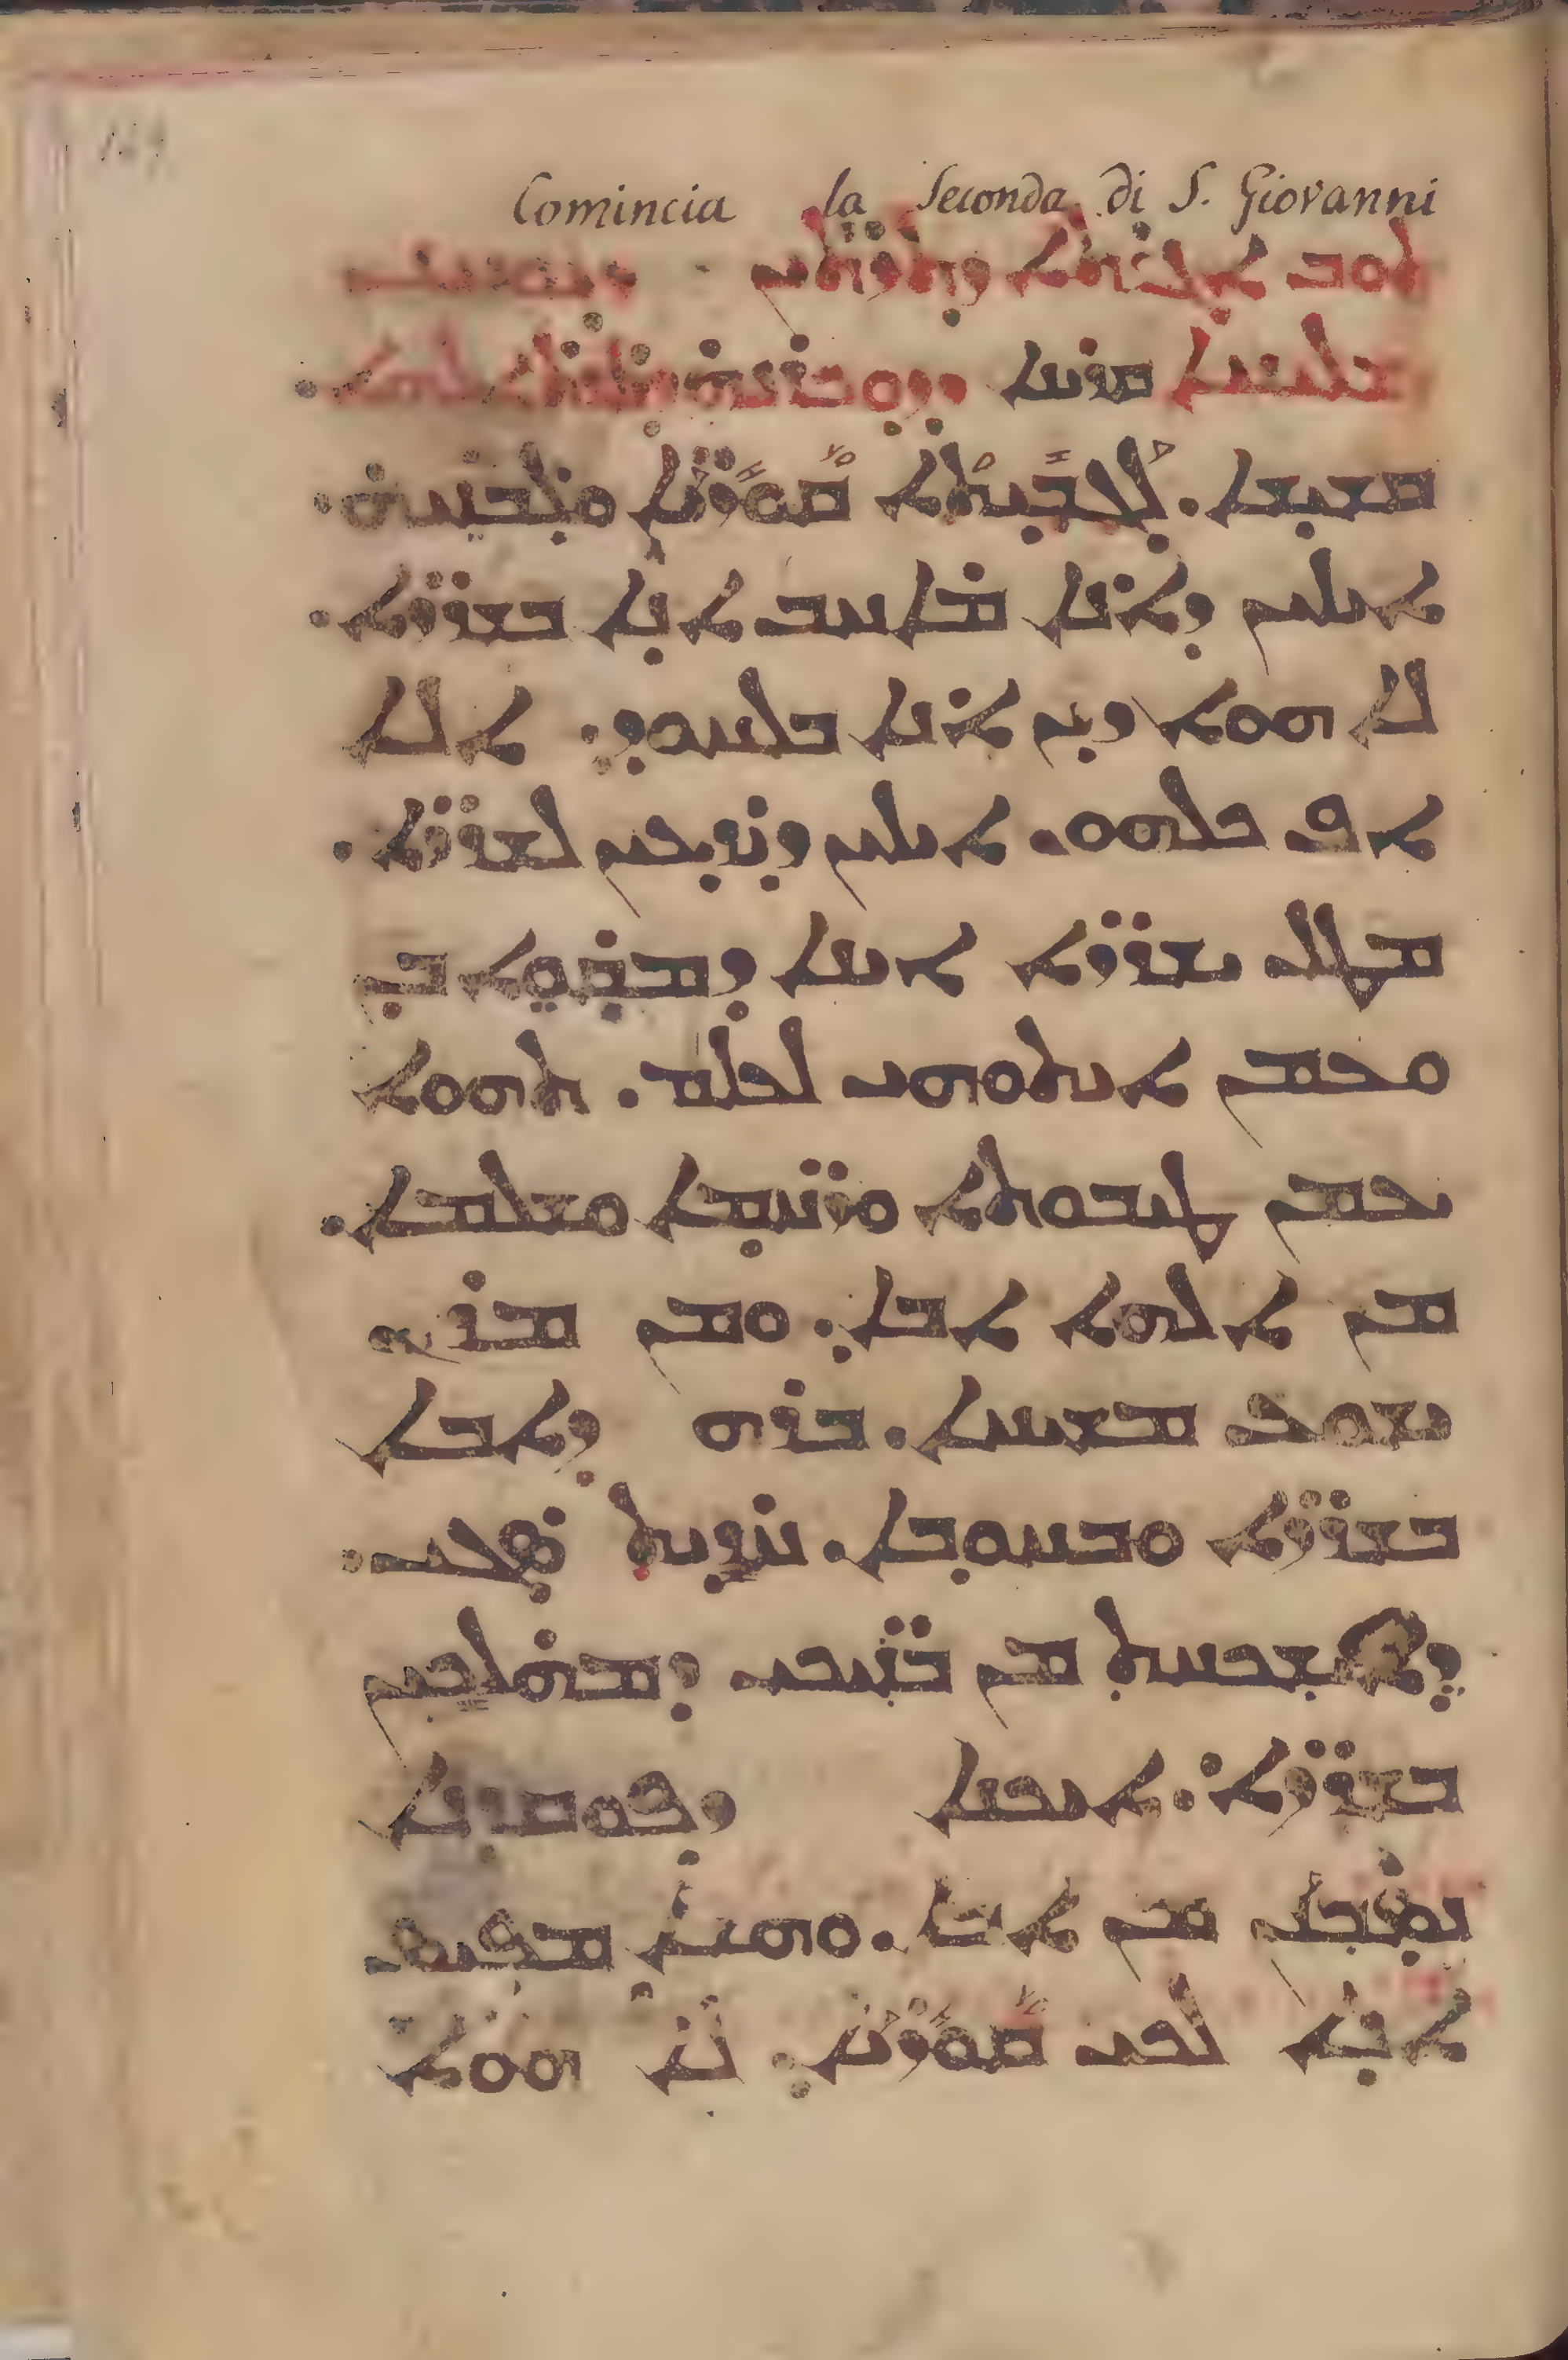 Comincia la Seconda di S. Giovanni
ܬܘܒ ܐܓܪܬܐ ܕܬܪܬܝܢ ܕܝܘܚܢܢ
ܫܠܝܚܐ ܡܪܢ
ܩܫܝܫܐ. ܠܓܒܝܬܐ ܩܘܪܝܐ ܘܠܒܢܝܗ.
ܐܝܠܝܢ ܕܐܢܐ ܡܚܒ ܐܢܐ ܒܫܪܪܐ.
ܠܐ ܗܘܐ ܕܝܢ ܐܢܐ ܒܠܚܘܕ: ܐܠܐ
ܐܦ ܟܠܗܘܢ ܐܝܠܝܢ ܕܝܕܥܝܢ ܠܫܪܪܐ.
ܡܛܠ ܫܪܪܐ ܐܝܢܐ ܕܡܩܘܐ ܒܢ
ܘܥܡܢ ܐܝܬܘܗܝ ܠܥܠܡ. ܬܗܘܐ
ܥܡܢ ܛܝܒܘܬܐ ܘܪܚܡܐ ܘܫܠܡܐ.
ܡܢ ܐܠܗܐ ܐܒܐ: ܘܡܢ ܡܪܢ
ܝܫܘܥ ܡܫܝܚܐ. ܒܪܗ ܕܐܒܐ
ܒܫܪܪܐ ܘܒܚܘܒܐ. ܚܕܝܬ ܣܓܝ.
ܕܐܫܟܚܬ ܡܢ ܒܢܝܟܝ ܕܡܗܠܟܝܢ
ܒܫܪܪܐ: ܐܝܟܢܐ ܕܦܘܩܕܢܐ
ܢܣܒܢ ܡܢ ܐܒܐ. ܘܗܫܐ ܡܦܝܣ
ܐܢܐ ܠܟܝ ܩܘܪܝܐ: ܠܐ ܗܘܐ